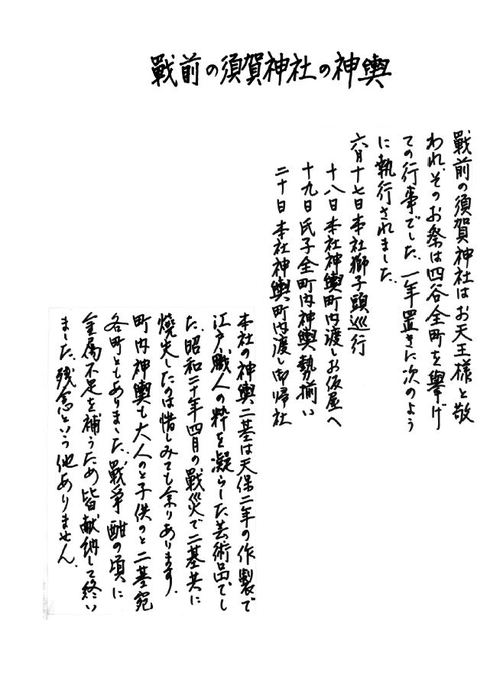 戰前の須賀神社の神輿
戰前の須賀神社はお天王様と敬
われ、そのお祭は四谷全町を擧げ
ての行事でした、一年置きに次のよう
に執行されました
六月十七日本社獅子頭巡行
十八日本社神輿町内渡しお仮屋へ
十九日氏子全町内神輿勢揃い
二十日本社神輿町内渡し御帰社
本社の神輿二基は天保二年の作製で
江戸職人の粋を凝らした芸術品でし
た、昭和二十年四月の戰災で二基共に
燒失したのは惜しみても余りあります。
町内神輿も大人のと子供のと二基宛
各町ともありました、戰争酣の頃に
金属不足を補うため皆献納して終い
ました、残念という他ありません、